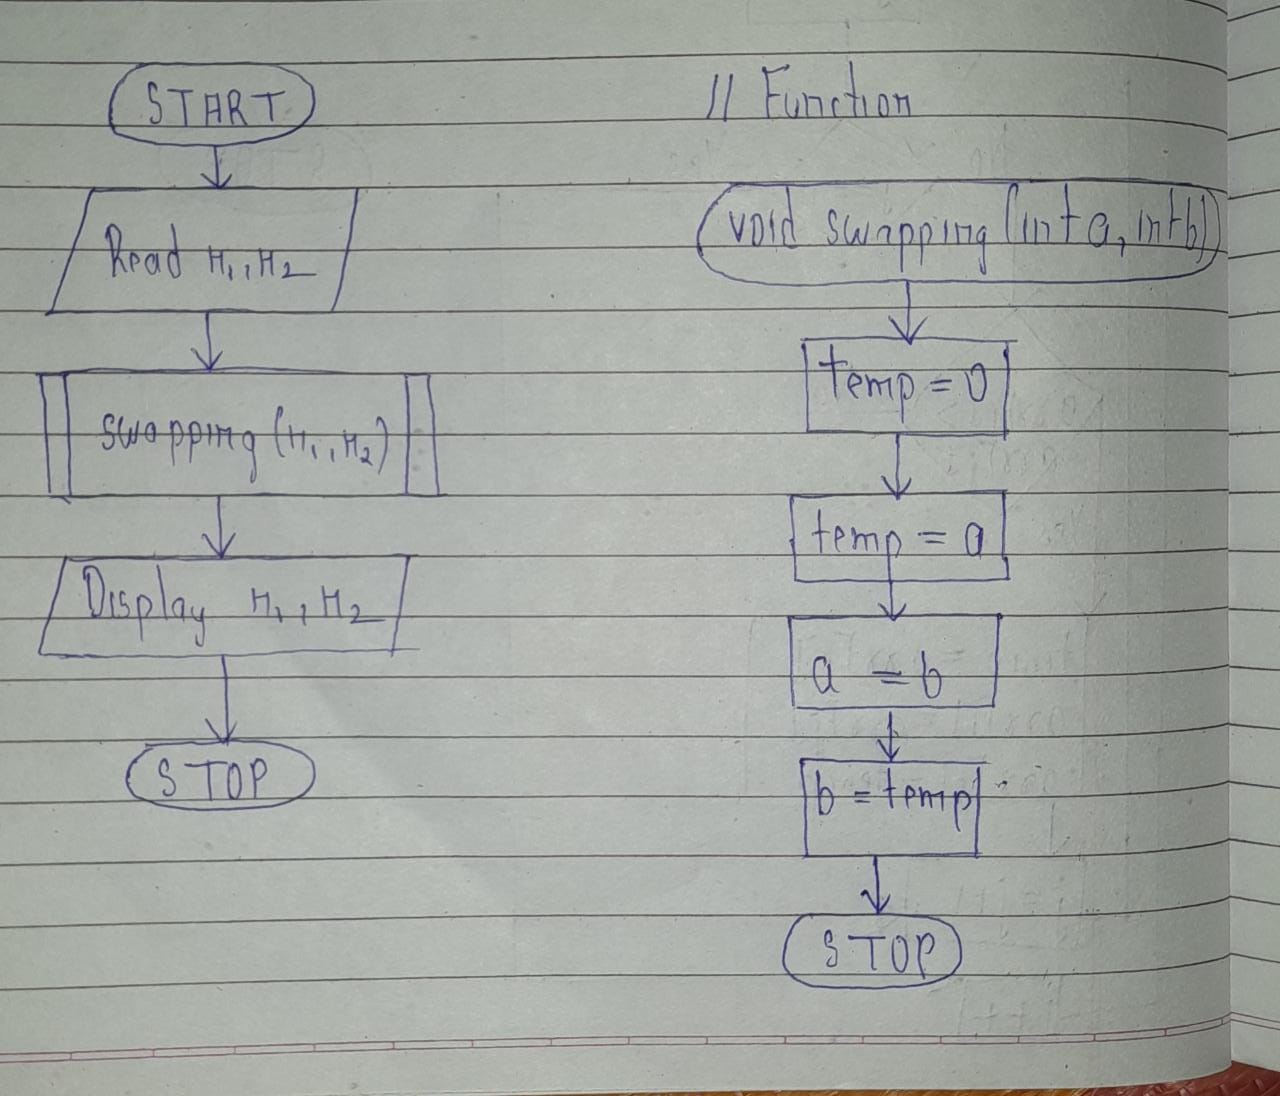 START
Read n₁, n₂
swapping (n₁, n₂)
Display n₁, n₂
STOP
// Function
void swapping (int a, int b)
temp = 0
temp = a
a = b
b = temp
STOP